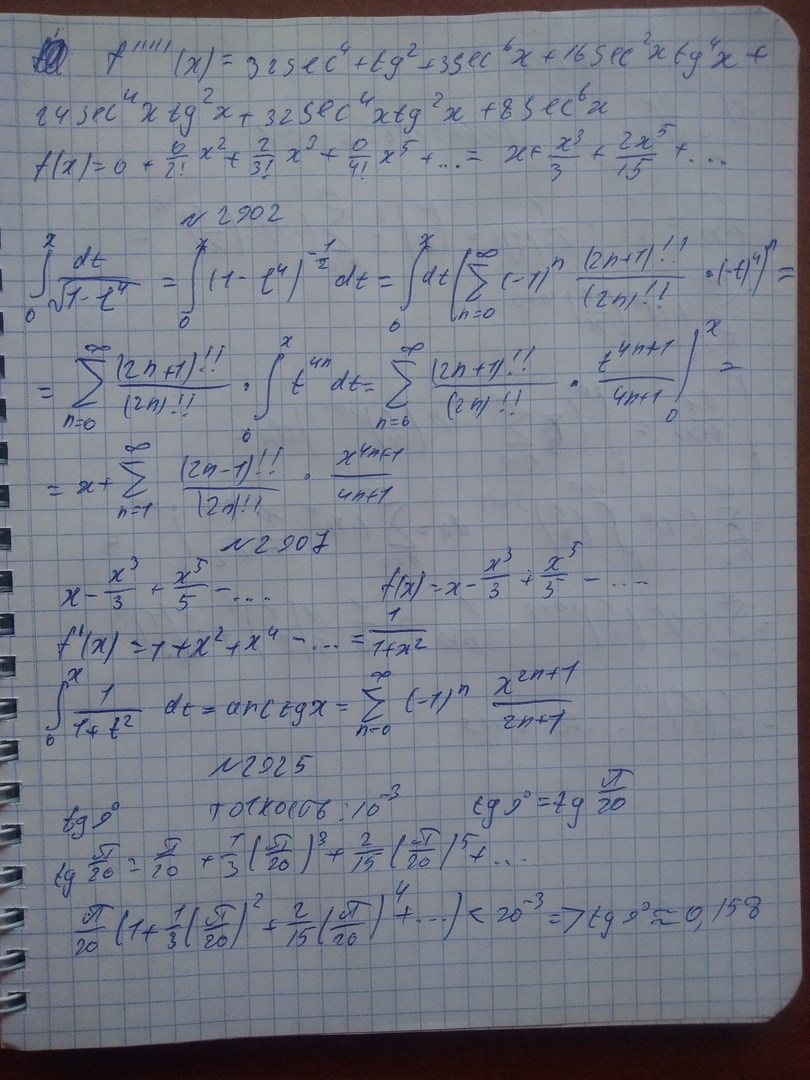 f'''''(x) = 32sec⁴ + tg² + 3sec⁶x + 16sec²x tg⁴x +
24sec⁴x tg²x + 32sec⁴x tg²x + 8sec⁶x
f(x) = 0 + 0/2! x² + 2/3! x³ + 0/4! x⁵ + ... = x + x³/3 + 2x⁵/15 + ...
№2902
∫₀ˣ dt/√(1-t⁴) = ∫₀ˣ (1-t⁴)^(-1/2) dt = ∫₀ˣ dt (∑_{n=0}^∞ (-1)ⁿ (2n+1)!!/(2n)!! · (-t)⁴)ⁿ =
= ∑_{n=0}^∞ (2n+1)!!/(2n)!! · ∫₀ˣ t^(4n) dt = ∑_{n=0}^∞ (2n+1)!!/(2n)!! · t^(4n+1)/(4n+1) |₀ˣ =
= x + ∑_{n=1}^∞ (2n-1)!!/(2n)!! · x^(4n+1)/(4n+1)
№2907
x - x³/3 + x⁵/5 - ... f(x) = x - x³/3 + x⁵/5 - ...
f'(x) = 1 + x² + x⁴ - ... = 1/(1+x²)
∫₀ˣ 1/(1+t²) dt = arctgx = ∑_{n=0}^∞ (-1)ⁿ x^(2n+1)/(2n+1)
№2925
tg 9° точность: 10⁻³ tg 9° = tg π/20
tg π/20 = π/20 + 1/3 (π/20)³ + 2/15 (π/20)⁵ + ...
π/20 (1 + 1/3 (π/20)² + 2/15 (π/20)⁴ + ...) < 20⁻³ => tg 9° ≈ 0,158